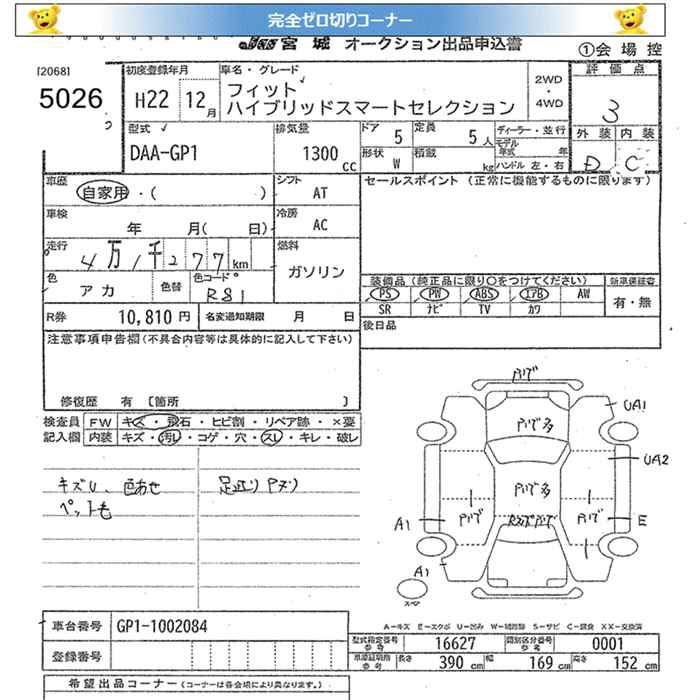 完全ゼロ切りコーナー
宮城 オークション出品申込書
①会場控
[2068]
5026
初度登録年月
H22 12月
車名・グレード
フィット
ハイブリッドスマートセレクション
2WD
・
4WD
評価点
3
外装 内装
D C
型式
DAA-GP1
排気量
1300 CC
ドア 5
定員 5人
形状 W
積載 kg
ディーラー・並行
モデル年式 年
ハンドル 左・右
車歴 自家用・( )
シフト AT
セールスポイント (正常に機能するものに限ります)
車検 年 月( 日)
冷房 AC
走行 4万1千277km
燃料 ガソリン
色 アカ 色替 色コード R81
装備品 (純正品に限り○をつけてください)
新車保証書
PS PW ABS エアB AW
SR ナビ TV カワ
有・無
R券 10,810円 名変通知期限 月 日
後日品
注意事項申告欄(不具合内容等は具体的に記入して下さい)
修復歴 有 [箇所 ]
検査員 FW キズ・飛石・ヒビ割・リペア跡・×要
記入欄 内装 キズ・汚レ・コゲ・穴・スレ・キレ・破レ
キズU、色あせ
足廻りサビ
UA1
UA2
A1
E
A1
スペア
A-キズ E-エクボ U-凹み W-補修跡 S-サビ C-腐食 XX-交換済
車台番号 GP1-1002084
登録番号
型式指定番号 参考 16627
類別区分番号 参考 0001
車庫証明用 参考 長さ 390cm 幅 169cm 高さ 152cm
希望出品コーナー (コーナーは各会場により異なります。)